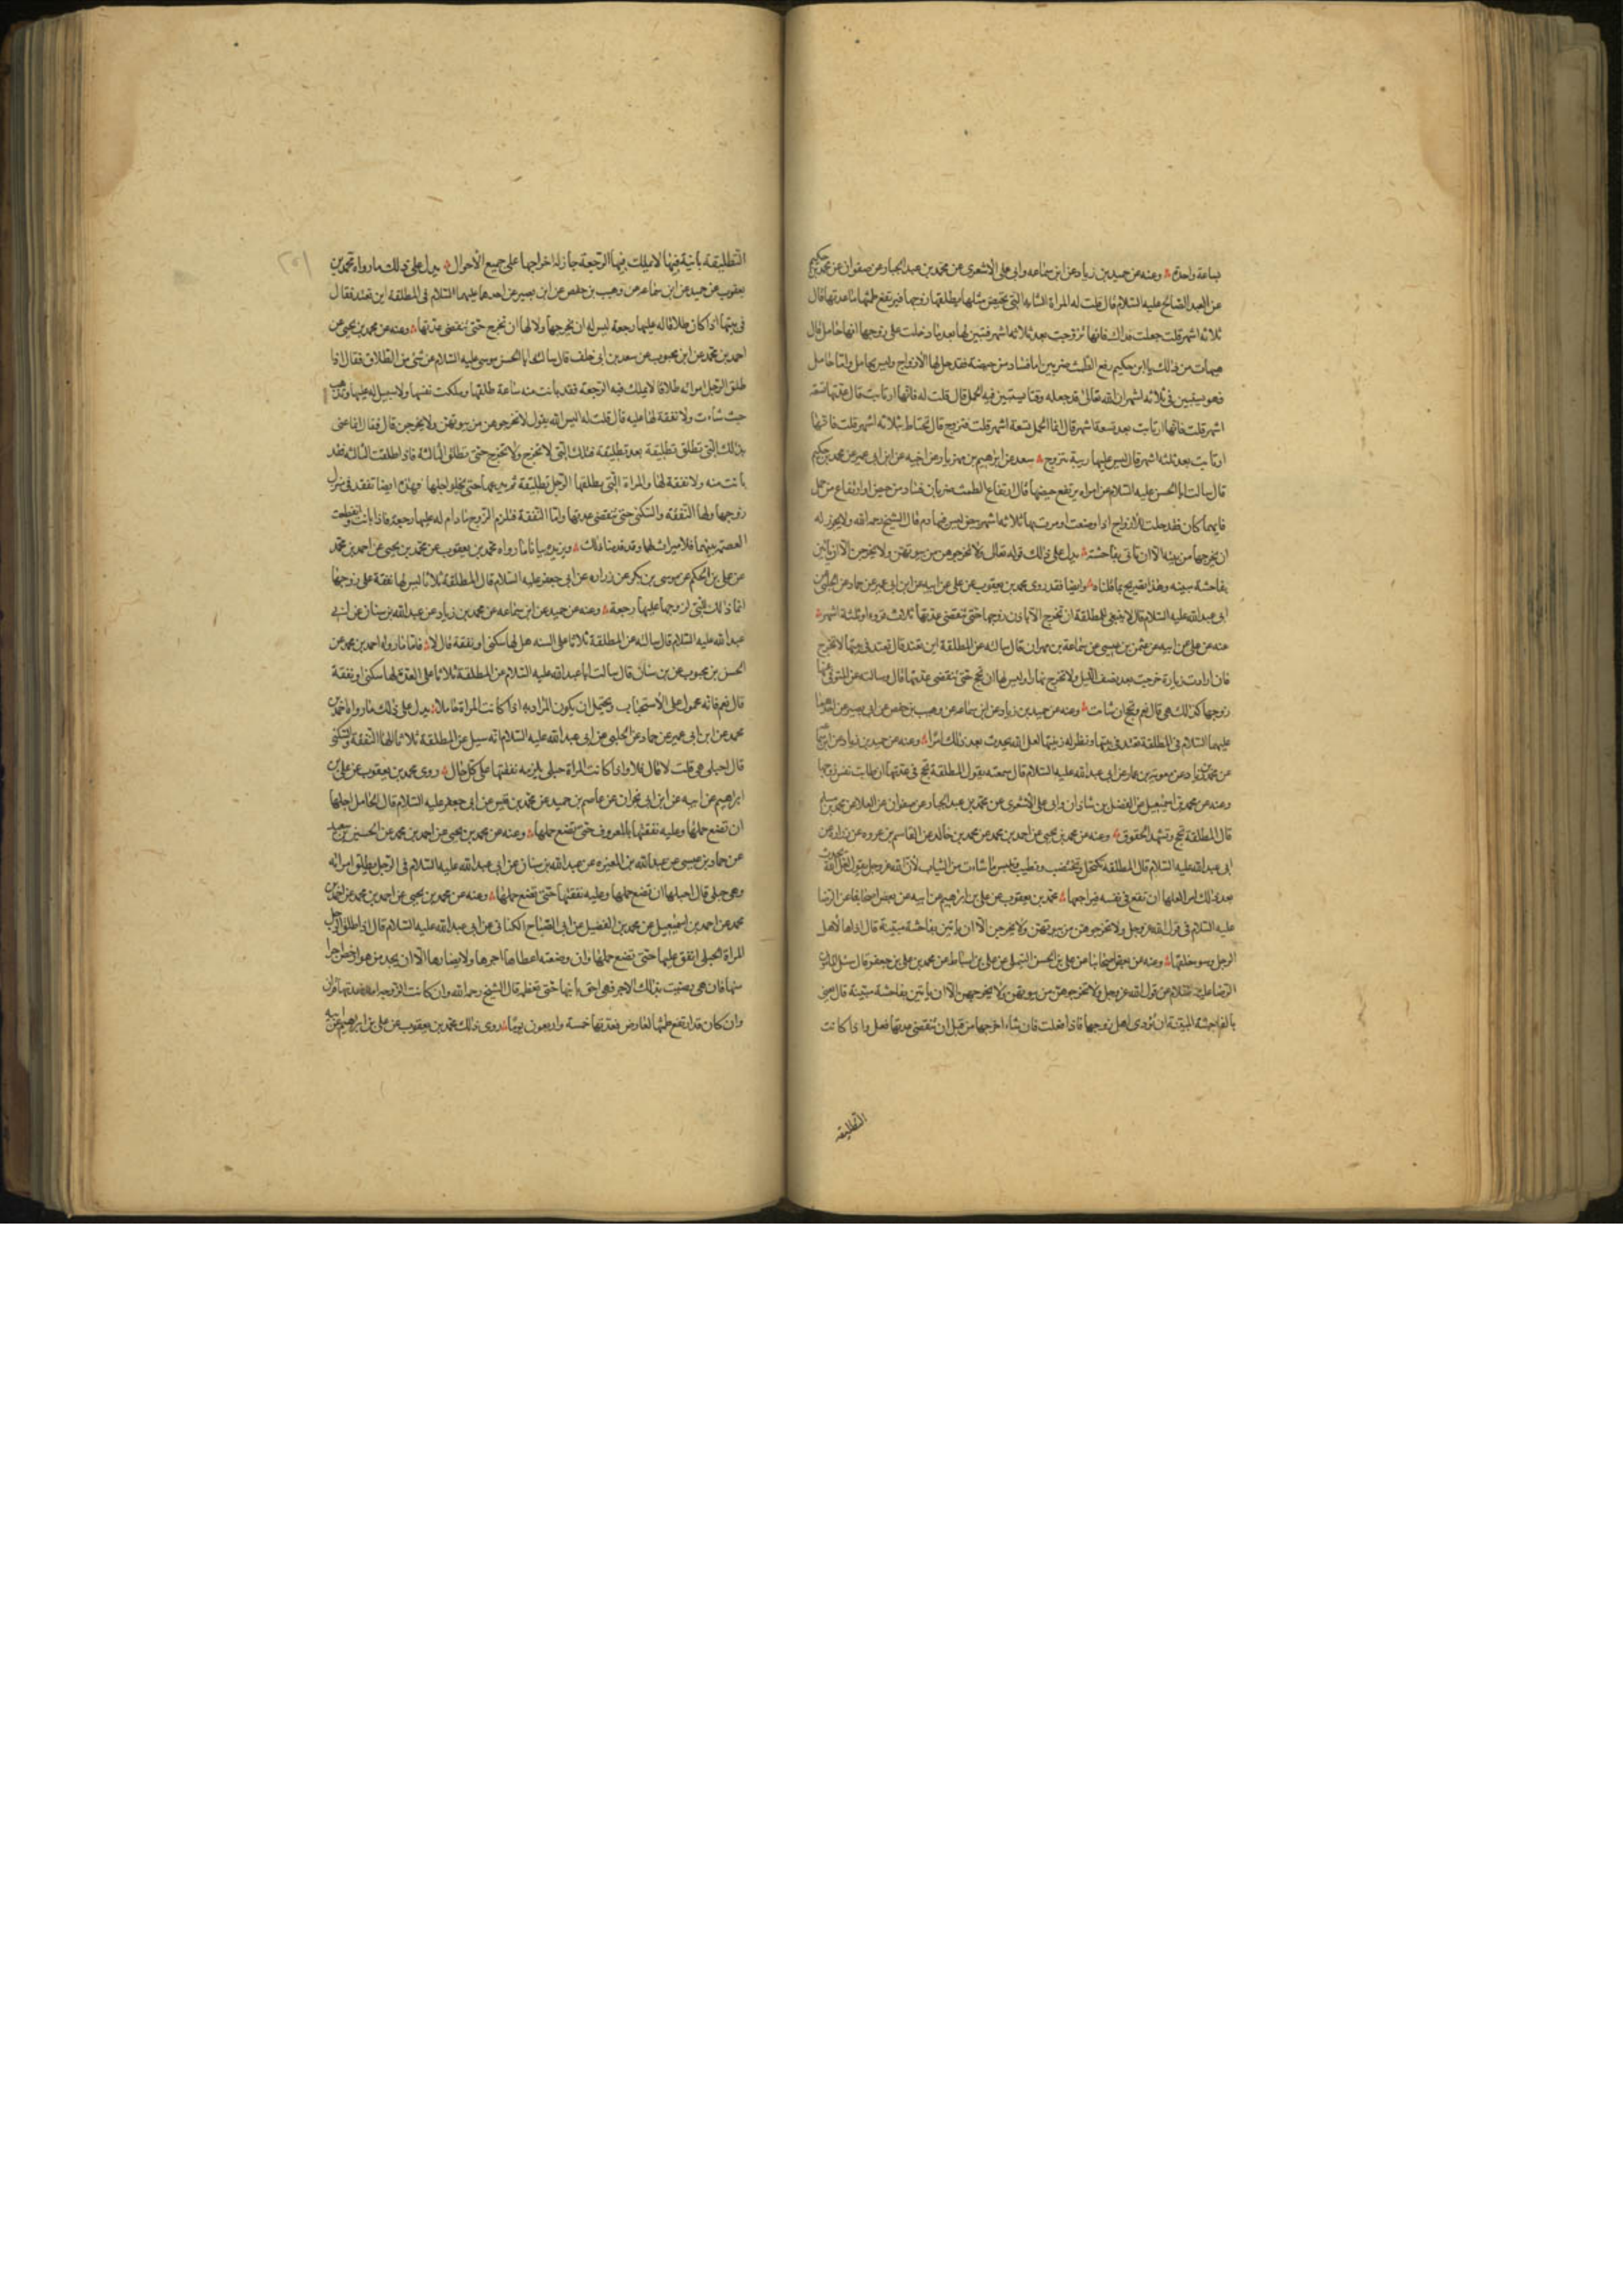 بساعة واحدة وعنه عن حميد بن زياد عن ابن سماعه وابى على الاشعرى عن محمد بن عبد الجبار عن صفوان عن محمد بن حكيم
عن العبد الصالح عليه السلام قال قلت له المراة الشابه التى تحيض مثلها يطلقها زوجها فيرتفع طمثها ما عدتها قال
ثلاثه اشهر قلت جعلت فداك فانها تزوجت بعد ثلاثه اشهر فتبين لها بعد ما دخلت على زوجها انها حامل قال
هيهات من ذلك يا ابن حكيم رفع الطمث ضربين اما فساد من حيضة فقد حل لها الازواج وليس بحامل واما حامل
فهو يستبين فى ثلاثه اشهر ان الله تعالى قد جعله وقتا يستبين فيه الحمل قال قلت له فانها ارتابت قال عدتها تسعة
اشهر قلت فانها ارتابت بعد تسعة اشهر قال انما الحمل تسعة اشهر قلت فتزوج قال تحتاط بثلاثه اشهر قلت فانها
ارتابت بعد ثلثه اشهر قال ليس عليها ريبة تتزوج سعد عن ابرهيم بن مهزيار عن اخيه عن ابن ابى عمير عن محمد بن حكيم
قال سالت ابا الحسن عليه السلام عن امراه يرتفع حيضها قال ارتفاع الطمث ضربان فساد من حيض او ارتفاع من حمل
فايهما كان فقد حلت للازواج اذا وضعت او مرت بها ثلاثه اشهر بيض ليس فيها دم قال الشيخ رحمه الله ولا يجوز له
ان يخرجها من بيته الا ان تاتى بفاحشة يدل على ذلك قوله تعالى ولا تخرجوهن من بيوتهن ولا يخرجن الا ان ياتين
بفاحشة مبينه وهذا تصريح بما قلناه وايضا فقد روى محمد بن يعقوب عن على عن ابيه عن ابن ابى عمير عن حماد عن الحلبى عن
ابى عبد الله عليه السلام قال لا ينبغى للمطلقة ان تخرج الا باذن زوجها حتى تنقضى عدتها ثلاث قروء او ثلثة اشهر
عنه عن على عن ابيه عن عثمن بن عيسى عن سماعة بن مهران قال سالته عن المطلقة اين تعتد قال تعتد فى بيتها لا تخرج
فان ارادت زيارة خرجت بعد نصف الليل ولا تخرج نهارا وليس لها ان تحج حتى تنقضى عدتها قال وسالته عن المتوفى عنها
زوجها كذلك هى قال نعم وتحج ان شاءت وعنه عن حميد بن زياد عن ابن سماعه عن وهيب بن حفص عن ابى بصير عن احدهما
عليهما السلام فى المطلقة تعتد فى بيتها وتظهر له زينتها لعل الله يحدث بعد ذلك امرا وعنه عن حميد بن زياد عن ابن سماعه
عن محمد بن زياد عن معوية بن عمار عن ابى عبد الله عليه السلام قال سمعته يقول المطلقة تحج فى عدتها ان طابت نفس زوجها
وعنه عن محمد بن اسمعيل عن الفضل بن شاذان وابى على الاشعرى عن محمد بن عبد الجبار عن صفوان عن العلا عن محمد بن مسلم
قال المطلقة تحج وتشهد الحقوق وعنه عن محمد بن يحيى عن احمد بن محمد عن محمد بن خالد عن القاسم بن عروه عن زراره عن
ابى عبد الله عليه السلام قال المطلقه تكتحل وتختضب وتطيب وتلبس ما شاءت من الثياب لان الله عز وجل يقول لعل الله يحدث
بعد ذلك امرا لعلها ان تقع فى نفسه فيراجعها محمد بن يعقوب عن على بن ابرهيم عن ابيه عن بعض اصحابنا عن الرضا
عليه السلام فى قول الله عز وجل ولا تخرجوهن من بيوتهن ولا يخرجن الا ان ياتين بفاحشة مبينة قال اذاها لاهل
الرجل وسوء خلقها وعنه عن بعض اصحابنا عن على بن الحسن التيملى عن على بن اسباط عن محمد بن على بن جعفر قال سئل المامون
الرضا عليه السلام عن قول الله عز وجل ولا تخرجوهن من بيوتهن ولا يخرجن الا ان ياتين بفاحشة مبينة قال يعنى
بالفاحشة المبينة ان تؤذى اهل زوجها فاذا فعلت فان شاء اخرجها من قبل ان تنقضى عدتها فعل واذا كانت
التطليقه
٢٥١
التطليقه باينة فيها لا يملك فيها الرجعة جاز له اخراجها على جميع الاحوال يدل على ذلك ما رواه محمد بن
يعقوب عن حميد عن ابن سماعه عن وهيب بن حفص عن ابى بصير عن احدهما عليهما السلام فى المطلقة اين تعتد فقال
فى بيتها اذا كان طلاقا له عليها رجعة ليس له ان يخرجها ولا لها ان تخرج حتى تنقضى عدتها وعنه عن محمد بن يحيى عن
احمد بن محمد عن ابن محبوب عن سعد بن ابى خلف قال سالت ابا الحسن موسى عليه السلام عن شىء من الطلاق فقال اذا
طلق الرجل امراته طلاقا لا يملك فيه الرجعة فقد بانت منه ساعة طلقها وملكت نفسها ولا سبيل له عليها وتذهب
حيث شاءت ولا نفقة لها عليه قال قلت له اليس الله يقول لا تخرجوهن من بيوتهن ولا يخرجن قال فقال انما عنى
بذلك التى تطلق تطليقة بعد تطليقة فتلك التى لا تخرج ولا تخرج حتى تطلق الثالثة فاذا طلقت الثالثه فقد
بانت منه ولا نفقة لها والمراة التى يطلقها الرجل تطليقة ثم يدعها حتى يخلو اجلها فهذه ايضا تقعد فى منزل
زوجها ولها النفقة والسكنى حتى تنقضى عدتها واما النفقة فتلزم الزوج ما دام له عليها رجعة فاذا بانت وانقطعت
العصمة بينهما فلا ميراث لها وقد قدمنا ذلك ويزيده بيانا ما رواه محمد بن يعقوب عن محمد بن يحيى عن احمد بن محمد
عن على بن الحكم عن موسى بن بكر عن زراره عن ابى جعفر عليه السلام قال المطلقة ثلاثا ليس لها نفقة على زوجها
انما ذلك للتى لزوجها عليها رجعة وعنه عن حميد عن ابن سماعه عن محمد بن زياد عن عبد الله بن سنان عن ابى
عبد الله عليه السلام قال سالته عن المطلقة ثلاثا على السنه هل لها سكنى او نفقة قال لا فاما ما رواه احمد بن محمد عن
الحسن بن محبوب عن بن سنان قال سالت ابا عبد الله عليه السلام عن المطلقة ثلاثا على العدة لها سكنى او نفقة
قال نعم فانه محمول على الاستحباب ويحتمل ان يكون المراد به اذا كانت المراة حاملا يدل على ذلك ما رواه احمد بن
محمد عن ابن ابى عمير عن حماد عن الحلبى عن ابى عبد الله عليه السلام انه سيل عن المطلقة ثلاثا الها النفقة والسكنى
قال احبلى هى قلت لا قال فلا واذا كانت المراة حبلى يلزمه نفقتها على كل حال روى محمد بن يعقوب عن على بن
ابرهيم عن ابيه عن ابن ابى نجران عن عاصم بن حميد عن محمد بن قيس عن ابى جعفر عليه السلام قال الحامل اجلها
ان تضع حملها وعليه نفقتها بالمعروف حتى تضع حملها وعنه عن محمد بن يحيى عن احمد بن محمد عن الحسين بن سعيد
عن حماد بن عيسى عن عبد الله بن المغيره عن عبد الله بن سنان عن ابى عبد الله عليه السلام فى الرجل يطلق امراته
وهى حبلى قال اجلها ان تضع حملها وعليه نفقتها حتى تضع حملها وعنه عن محمد بن يحيى عن احمد بن محمد عن احمد بن
محمد عن احمد بن اسمعيل عن محمد بن الفضيل عن ابى الصباح الكنانى عن ابى عبد الله عليه السلام قال اذا طلق الرجل
المراة الحبلى انفق عليها حتى تضع حملها وان وضعته اعطاها اجرها ولا يضارها الا ان يجد من هو ارخص اجرا
منها فان هى رضيت بذلك الاجر فهى احق بابنها حتى تفطمه قال الشيخ رحمه الله وان كانت الزوجة امة فعدتها قرآن
وان كان قد ارتفع طمثها لعارض فعدتها خمسة واربعون يوما روى ذلك محمد بن يعقوب عن على بن ابراهيم عن ابيه